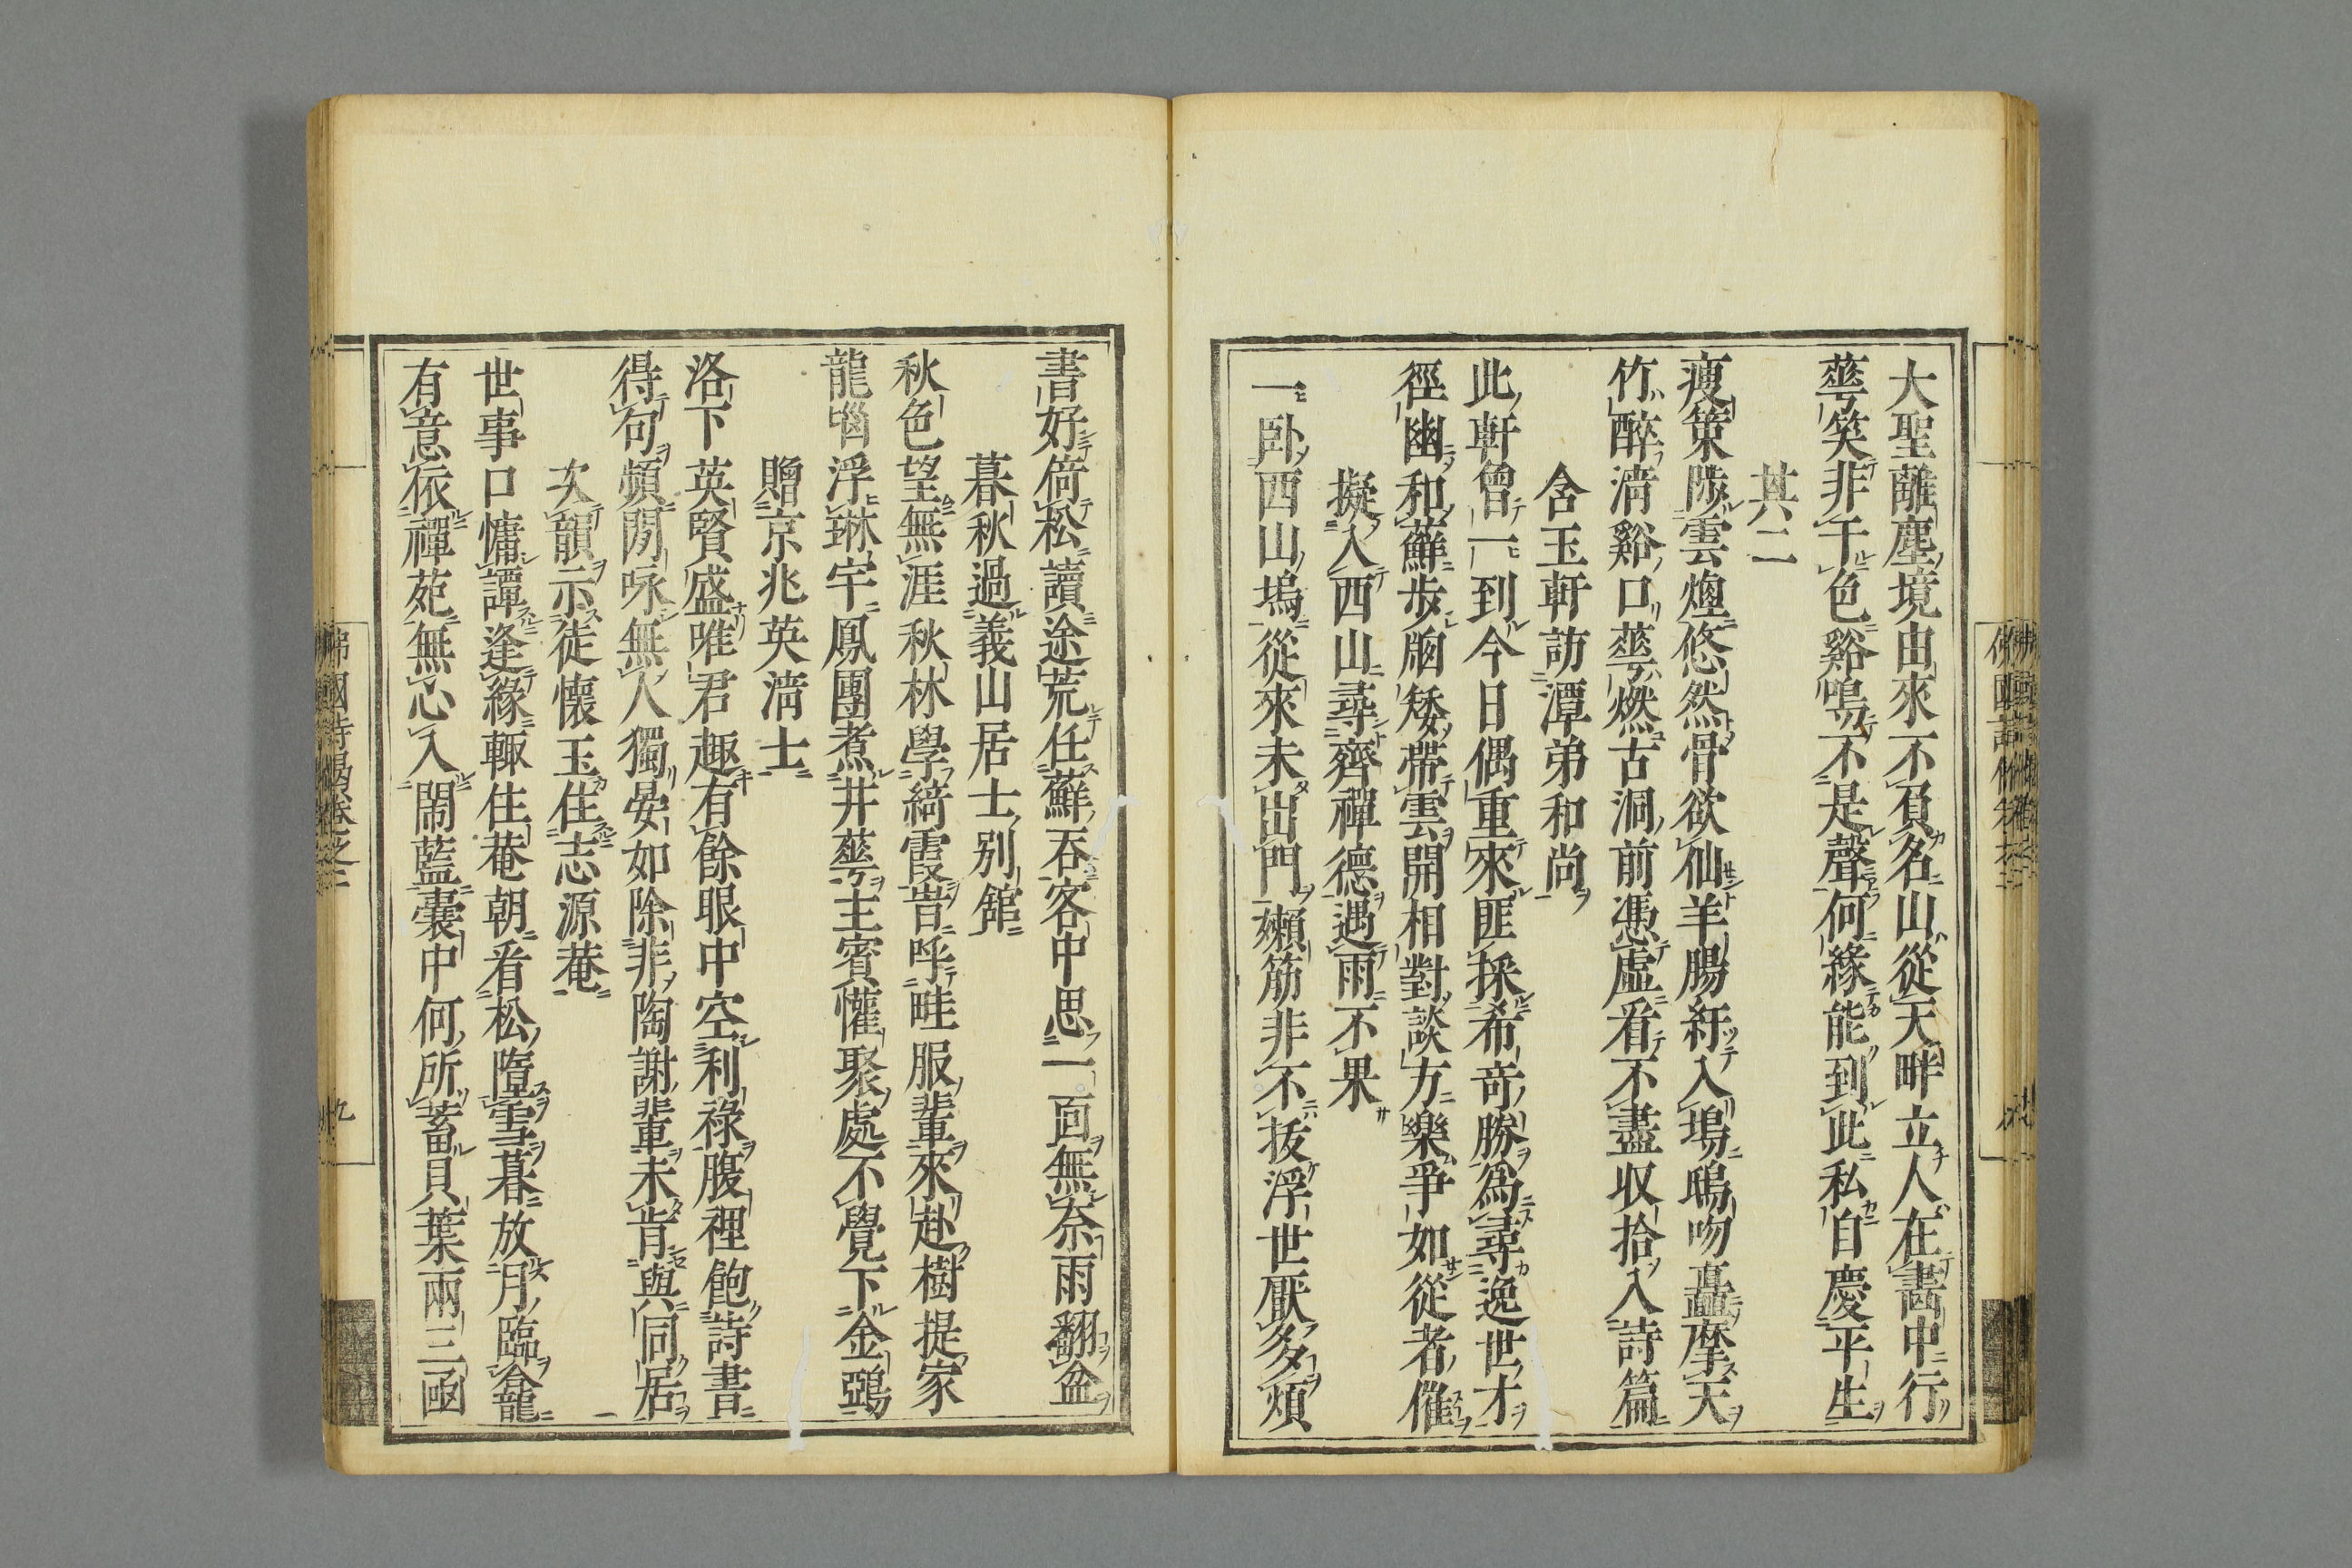 大聖離塵境由來不負名山從天畔立人在畵中行
蕚笑非干色谿鳴不是聲何緣能到此私自慶平生
其二
瘦策陟雲煙悠然骨欲仙羊腸紆入塢鴟吻矗摩天
竹醉淸谿口蕚燃古洞前憑虛看不盡収拾入詩篇
含玉軒訪潭弟和尚
此軒曾一到今日偶重來匪採希奇勝爲尋逸世才
徑幽和蘚歩牕矮帶雲開相對談方樂爭如從者催
擬入西山尋齊禪德遇雨不果
一卧西山塢從來未出門嬾筋非不抜浮世厭多煩
書好倚松讀途荒任蘚呑客中思一面無奈雨翻盆
暮秋過義山居士別舘
秋色望無涯秋林學綺霞昔呼畦服輩來赴樹提家
龍𦛁浮琳宇鳳團煮井蕚主賓懽聚處不覺下金鵶
贈京兆英淸士
洛下英賢盛唯君趣有餘眼中空利祿腹裡飽詩書
得句頻閒咏無人獨晏如除非陶謝輩未肯與同居
次韻示徒懷玉住志源菴
世事口慵譚逢緣輙住菴朝看松墮雪暮放月臨龕
有意依禪苑無心入閙藍囊中何所蓄貝葉兩三凾
佛國詩偈卷之二
九